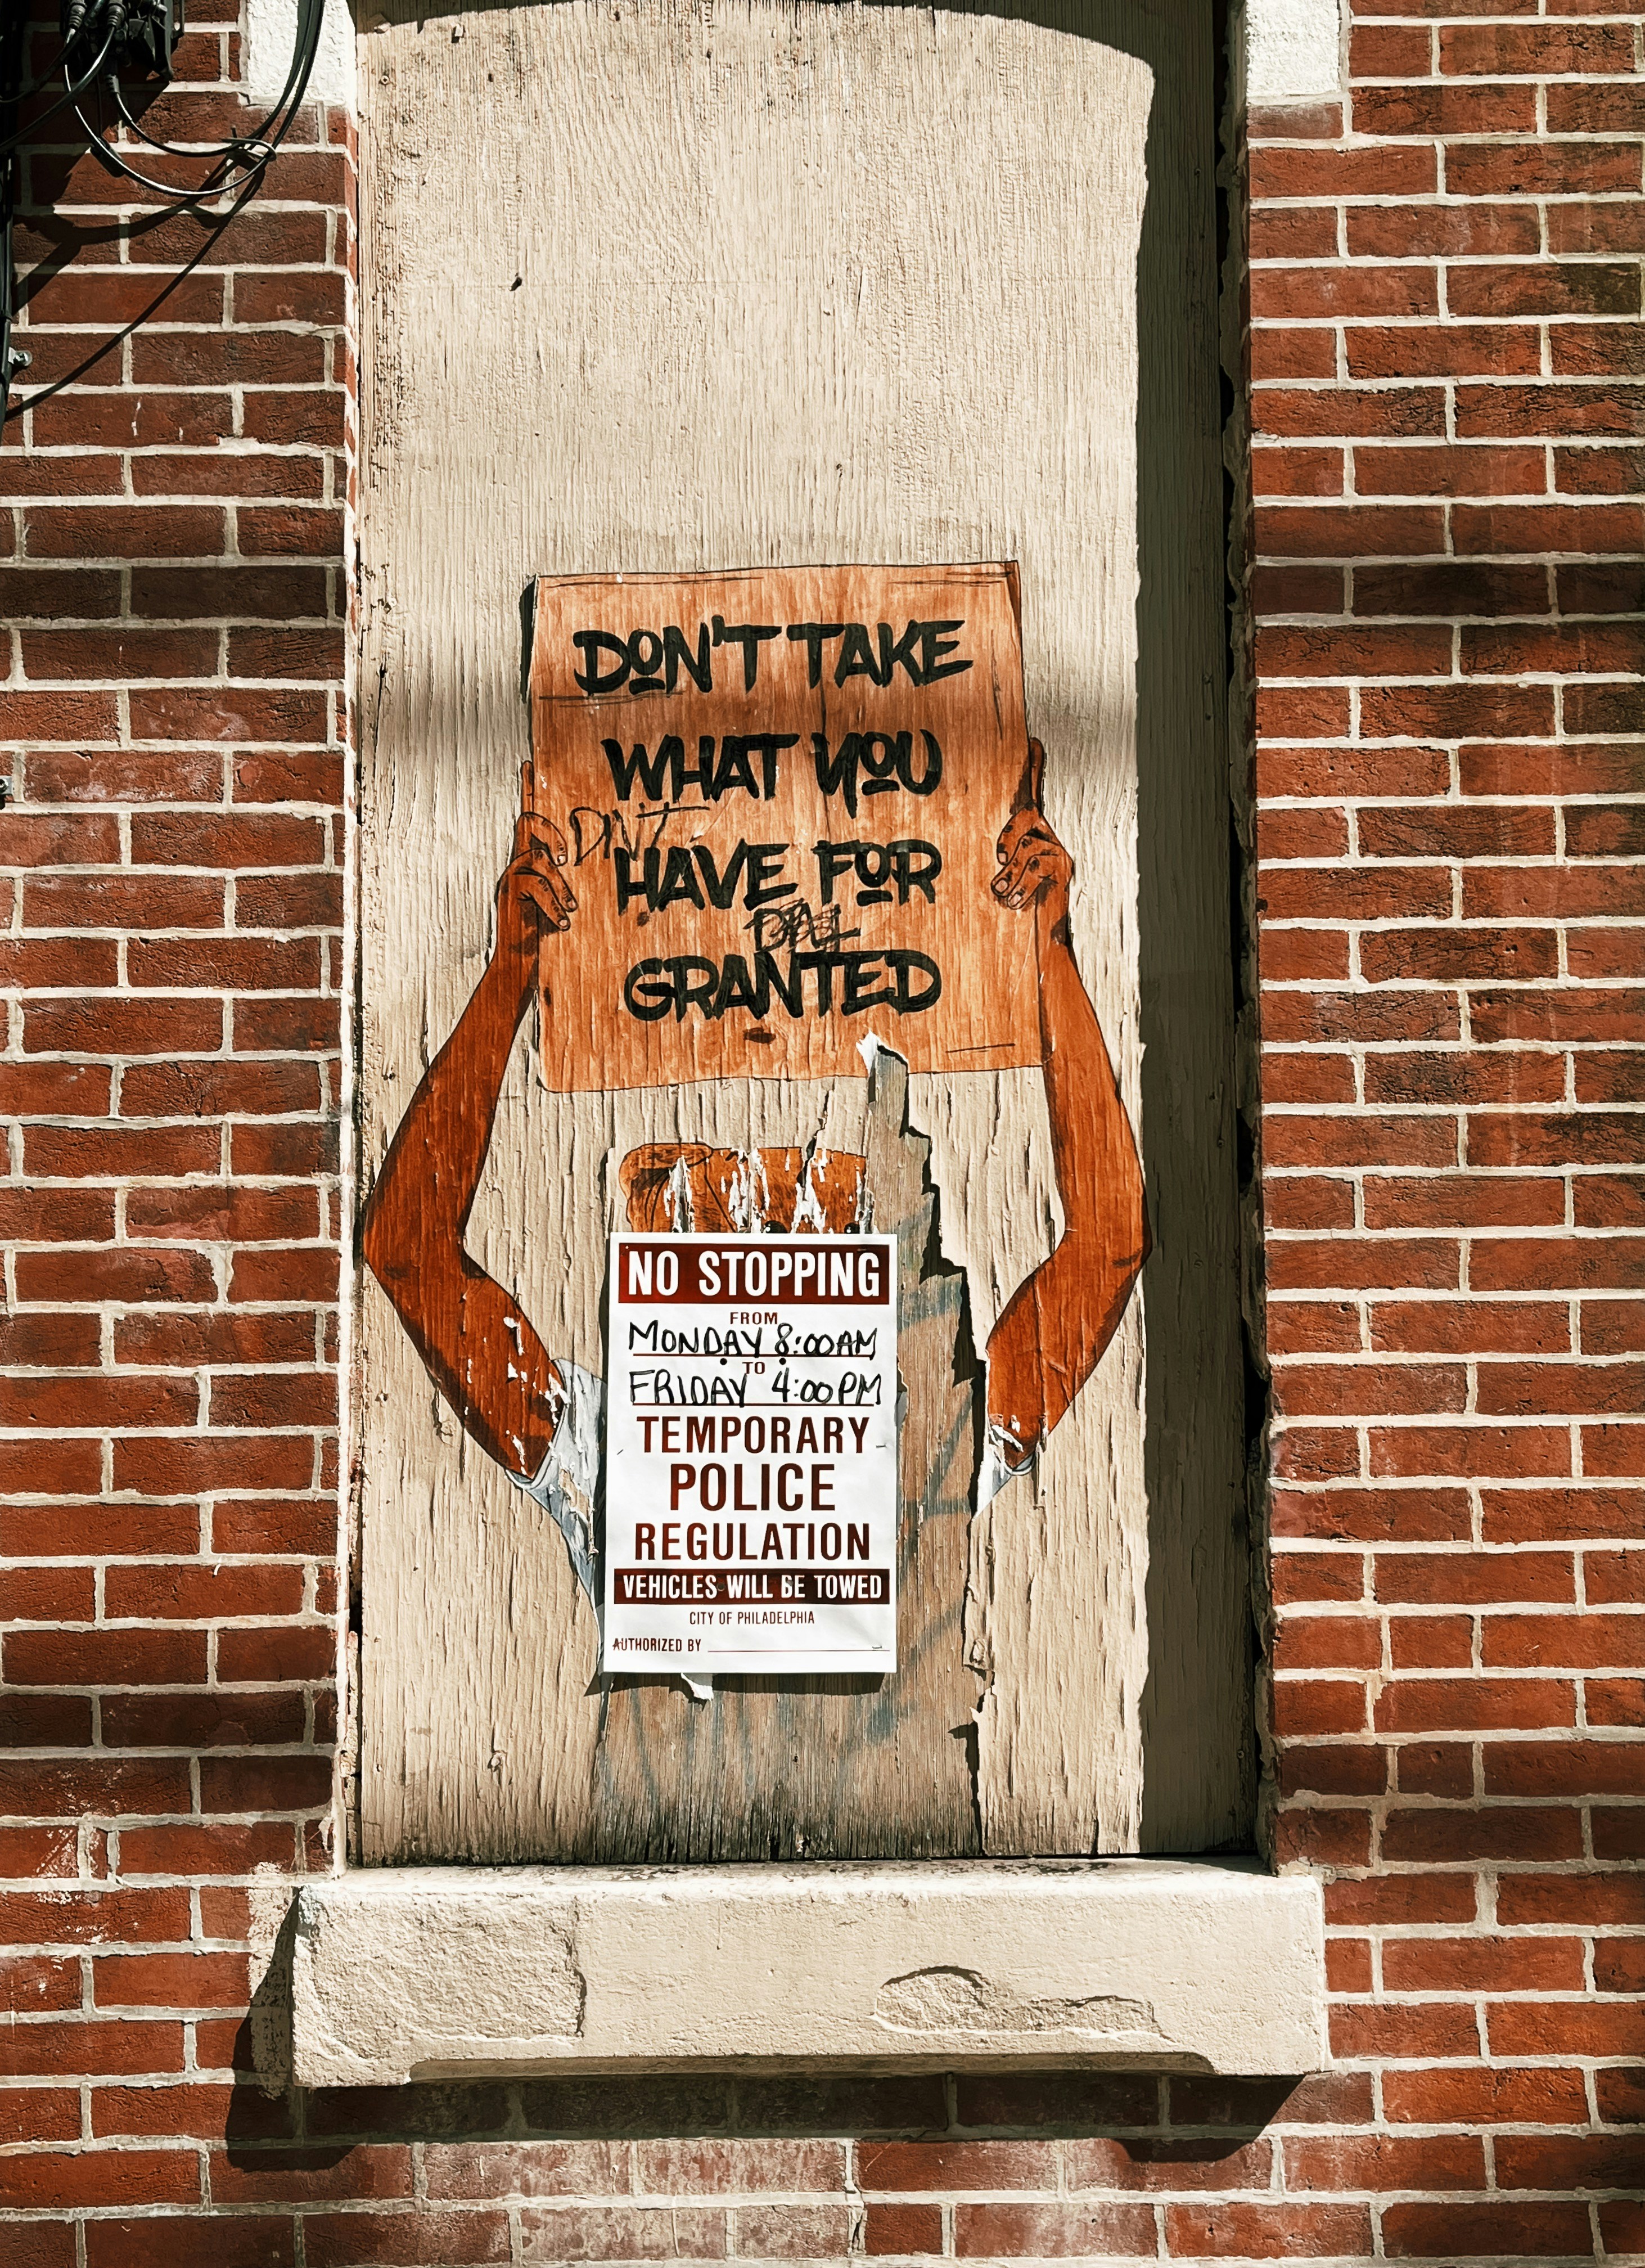 DON'T TAKE
WHAT YOU
HAVE FOR
GRANTED
NO STOPPING
FROM
MONDAY 8:00AM
TO
FRIDAY 4:00PM
TEMPORARY
POLICE
REGULATION
VEHICLES WILL BE TOWED
CITY OF PHILADELPHIA
AUTHORIZED BY